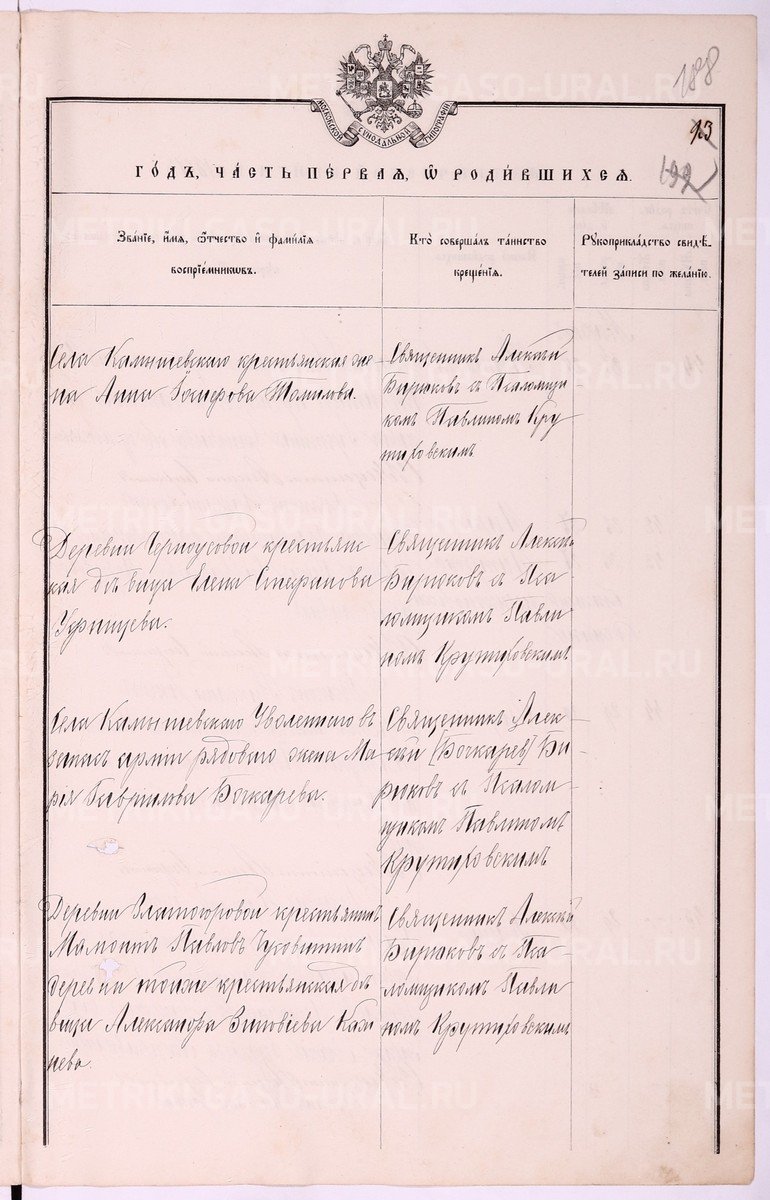 188
93
192
МОСКОВСКОЙ СУНОДАЛЬНОЙ ТИПОГРАФІИ
ГОДЪ, ЧАСТЬ ПЕРВАЯ, Ѡ РОДИВШИХСЯ.
Званіе, имя, ѻтчество и фамилія
воспріемниковъ.
Кто совершалъ таинство
крещенія.
Рукоприкладство свидѣ-
телей записи по желанію.
Села Камышевскаго крестьянская же-
на Анна Іосифова Томилова.
Священникъ Алексѣй
Бирюковъ съ Псаломщи
комъ Павлиномъ Кру
тиховскимъ
Деревни Черноусовой крестьянс
кая дѣвица Елена Стефанова
Священникъ Алексѣй
Бирюковъ съ Пса-
ломщикомъ Павли
номъ Крутиховскимъ
Села Камышевскаго Уволеннаго въ
запасъ арміи рядоваго жена Ма-
рія Гаврилова Бочкарева.
Священникъ Алек-
сѣй [Бочкарев] Би-
рюковъ съ Псалом-
щикомъ Павлиномъ
Крутиховскимъ
Деревни Златогоровой крестьянинъ
Мамонтъ Павловъ Чуковитинъ
деревни тойже крестьянская дѣ
вица Александра Зиновіева
Священникъ Алексѣй
Бирюковъ съ Пса-
ломщикомъ Павли
номъ Крутиховскимъ
METRIKI.GASO-URAL.RU